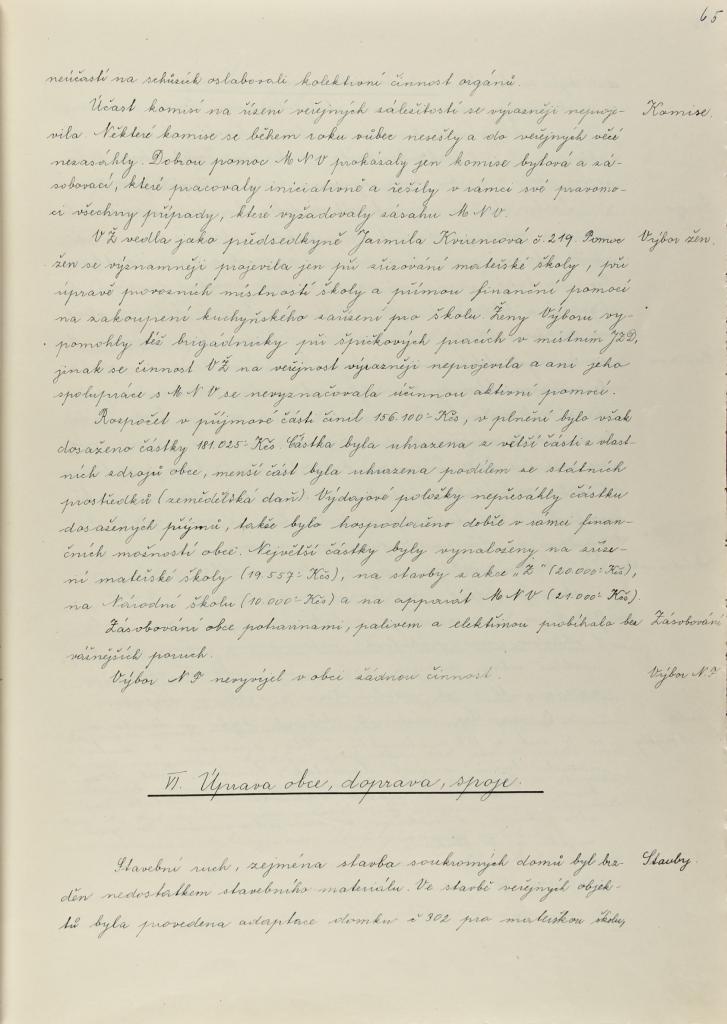 65
neúčastí na schůzích oslabovali kolektivní činnost orgánů.
Účast komisí na řízení veřejných záležitostí se výrazněji neproje- Komise.
vila. Některé komise se během roku vůbec nesešly a do veřejných věcí
nezasáhly. Dobrou pomoc MNV prokázaly jen komise bytová a zá-
sobovací, které pracovaly iniciativně a řešily v rámci své pravomo-
ci všechny případy, které vyžadovaly zásahu MNV.
VŽ vedla jako předsedkyně Jarmila č. 219. Pomoc Výbor žen.
žen se významněji projevila jen při zřizování mateřské školy, při
úpravě provozních místností školy a přímou finanční pomocí
na zakoupení kuchyňského zařízení pro školu. Ženy Výboru vy-
pomohly též brigádnicky při špičkových pracích v místním JZD,
jinak se činnost VŽ na veřejnost výrazněji neprojevila a ani jeho
spolupráce s MNV se nevyznačovala účinnou aktivní pomocí.
Rozpočet v příjmové části činil 156.100·- Kčs, v plnění bylo však
dosaženo částky 181.025·- Kčs. Částka byla uhrazena z větší části z vlast-
ních zdrojů obce, menší část byla uhrazena podílem ze státních
prostředků (zemědělská daň). Výdajové položky nepřesáhly částku
dosažených příjmů, takže bylo hospodařeno dobře v rámci finan-
čních možností obcí. Největší částky byly vynaloženy na zříze-
ní mateřské školy (19.557·- Kčs), na stavby z akce „Z" (20.000·- Kčs),
na Národní školu (10.000·- Kčs) a na apparát MNV (21.000·- Kčs).
Zásobování obce potravinami, palivem a elektřinou probíhalo bez Zásobování
vážnějších poruch.
Výbor NF nevyvíjel v obci žádnou činnost. Výbor NF
VI. Úprava obce, doprava, spoje.
Stavební ruch, zejména stavba soukromých domů byl brz- Stavby.
děn nedostatkem stavebního materiálu. Ve stavbě veřejných objek-
tů byla provedena adaptace domku č 302 pro mateřskou školu,